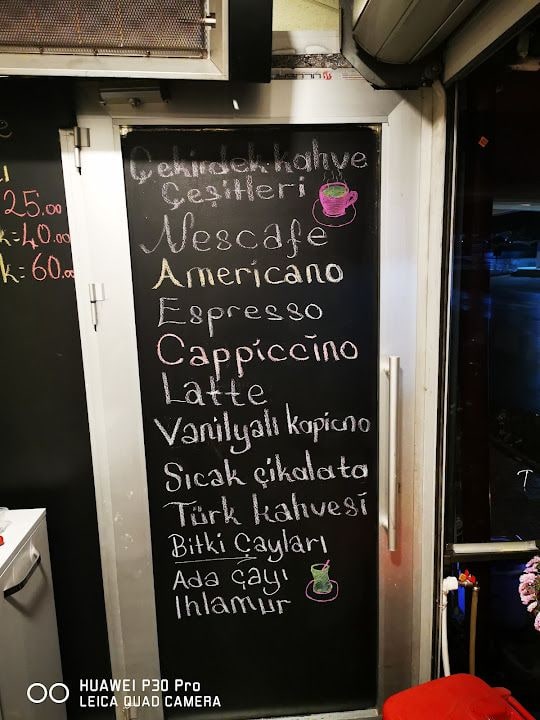 25.00
k=40.00
k=60.00
Çekirdek kahve
Çeşitleri
Nescafe
Americano
Espresso
Cappiccino
Latte
Vanilyalı kapicno
Sıcak çikalata
Türk kahvesi
Bitki Çayları
Ada çayı
Ihlamur
HUAWEI P30 Pro
LEICA QUAD CAMERA